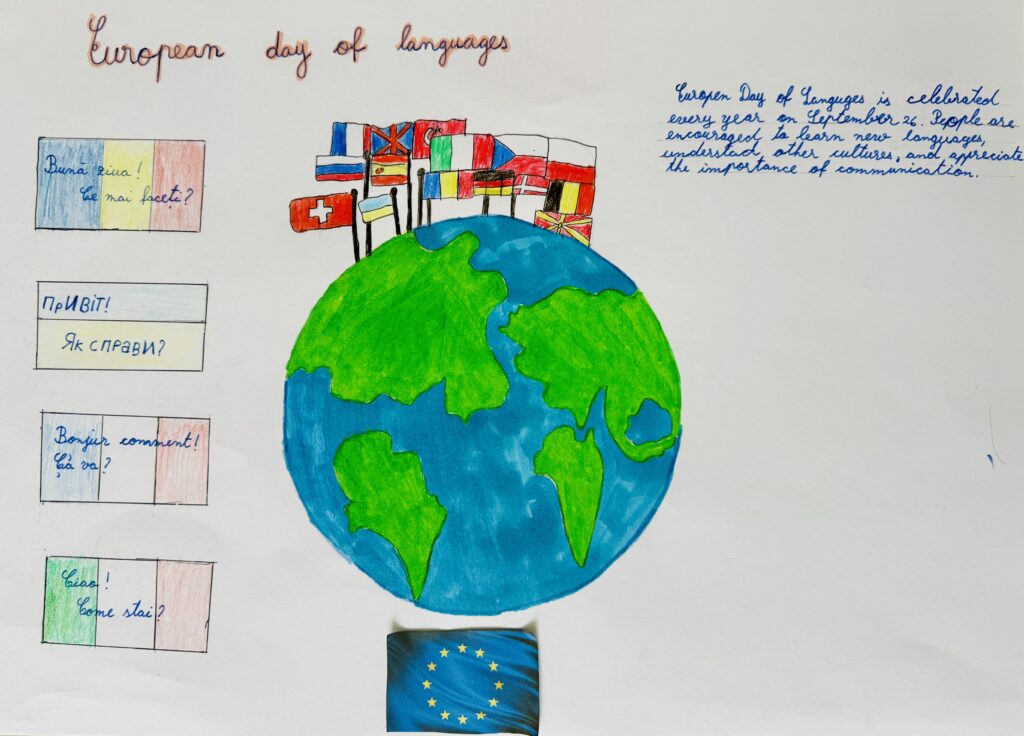 European day of languages
Europen Day of Languges is celebrated
every year on September 26. People are
encouraged to learn new languages,
understad other cultures, and appreciate
the importance of communication.
Bună ziua!
Ce mai faceți?
ПРИВІТ!
Як справи?
Bonjur comment!
Çà va?
Ciao!
Come stai?